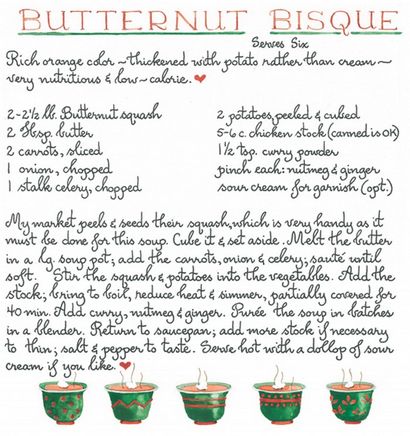 BUTTERNUT BISQUE
Serves Six
Rich orange color ~ thickened with potato rather than cream ~
very nutritious & low-calorie. ❤
2-2½ lb. Butternut squash
2 Tbsp. butter
2 carrots, sliced
1 onion, chopped
1 stalk celery, chopped
2 potatoes, peeled & cubed
5-6 c. chicken stock (canned is OK)
1½ tsp. curry powder
pinch each: nutmeg & ginger
sour cream for garnish (opt.)
My market peels & seeds their squash, which is very handy as it
must be done for this soup. Cube it & set aside. Melt the butter
in a lg. soup pot; add the carrots, onion & celery; sauté until
soft. Stir the squash & potatoes into the vegetables. Add the
stock; bring to boil, reduce heat & simmer, partially covered for
40 min. Add curry, nutmeg & ginger. Purée the soup in batches
in a blender. Return to saucepan; add more stock if necessary
to thin; salt & pepper to taste. Serve hot with a dollop of sour
cream if you like. ❤